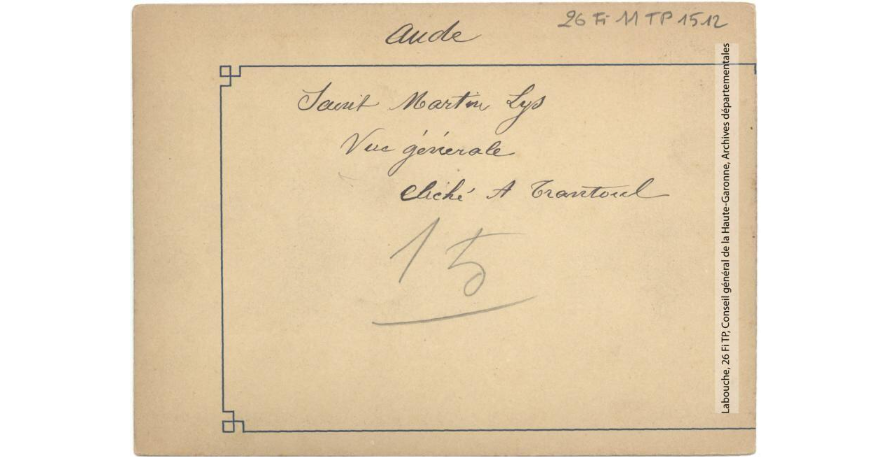 Aude
26 Fi 11 TP 1512
Saint Martin Lys
Vue générale
cliché A Trantoul
15
Labouche, 26 Fi TP, Conseil général de la Haute-Garonne, Archives départementales